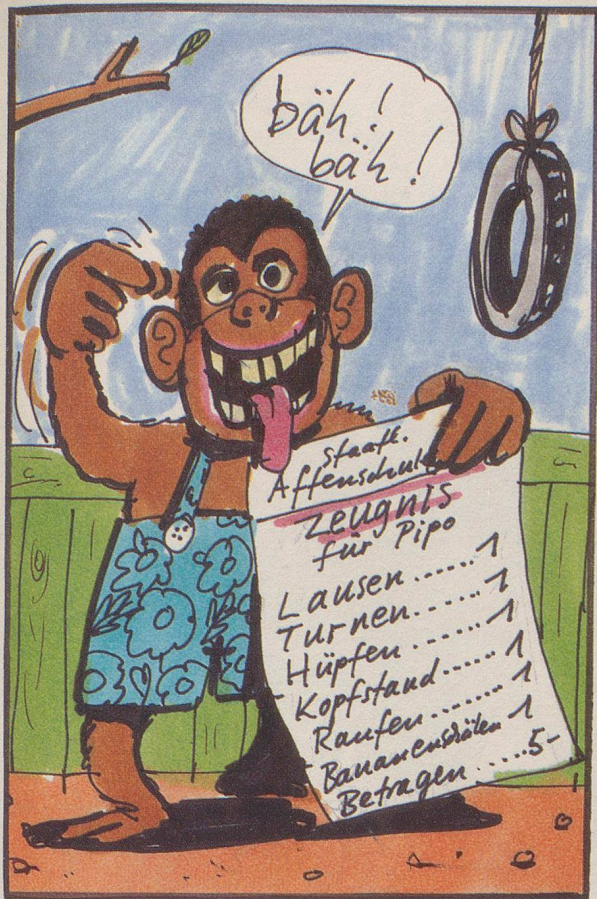 bäh!
bäh!
staatl.
Affenschule
Zeugnis
für Pipo
Lausen......1
Turnen......1
Hüpfen......1
Kopfstand.....1
Raufen.......1
Bananenschälen 1
Betragen.....5-